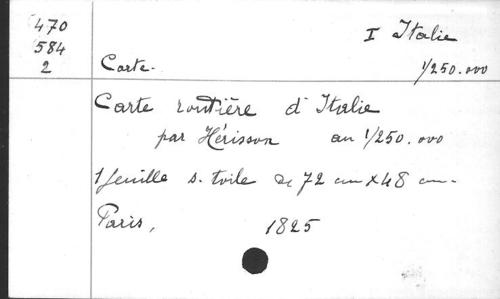 470
584
2
I Italie
Carte. 1/250.000
Carte routière d'Italie
par Hérisson au 1/250.000
1 feuille s. toile de 72 cm x 48 cm.
Paris, 1825